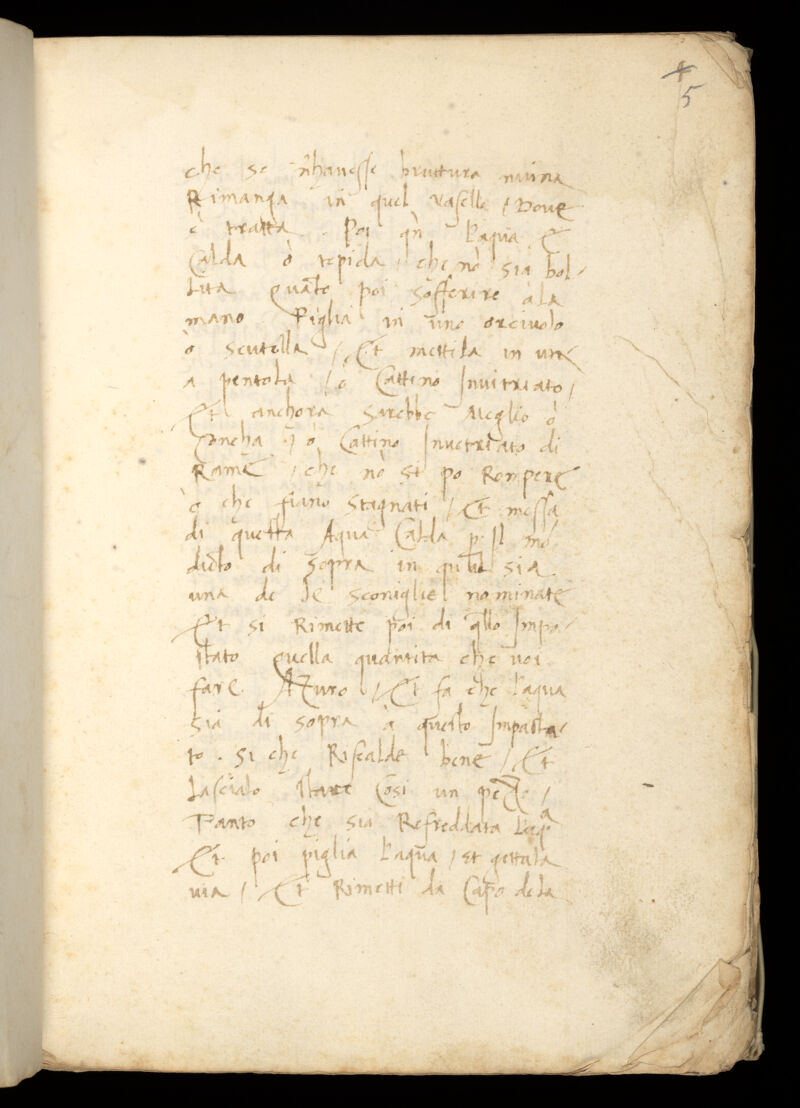 5
che se n'havesse bruttura niuna
Rimanga in quel vasello / Dove
è tratta. Poi qñ l'aqua è
Calda ò tepida, che nõ sia bol-
lita quãto poi sofferire à la
mano. Piglia in uno orcivolo
ò scutella / Et mettila in une
a pentola / ò Cattino Invitriato /
Et anchora sarebbe Meglio ò
Concha, ò Cattino Invetriato di
Rame / che nõ si po Rompere
ò che siano stagnati / Et messa
di questa Aqua Calda p Il mõ
dicto di sopra in qual sia
una de le sconiglie nominate
Et si Rimette poi di qllo Impa-
stato quella quantita che voi
fare Azuro / Et fa che l'aqua
sia di sopra à questo Impasta-
to. Si che Riscalde bene / Et
Lascialo stare Cosi un pezzo /
Tanto che sia Refreddata l'aqa
Et poi piglia l'aqua / et gettala
via / Et Rimetti da Capo de la